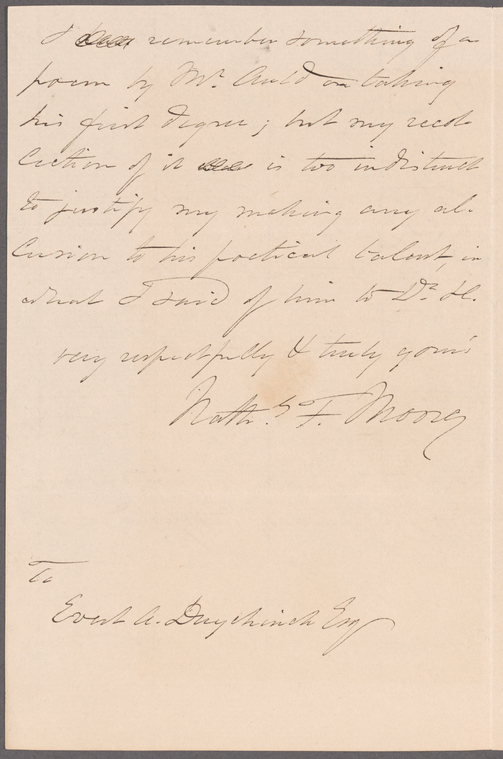 I remember something of a
poem by Mr. Auld on taking
his first degree; but my recol-
lection of it is too indistinct
to justify my making any al-
lusion to his poetical talent, in
what I said of him to Dr. H.
very respectfully & truly yours
Nathl. F. Moore
To
Evert A. Duyckinck Esq